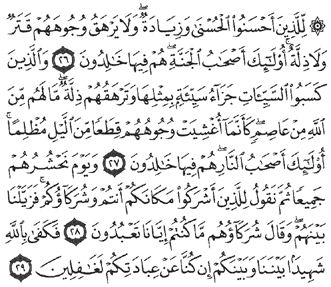 ۞ لِّلَّذِينَ أَحْسَنُوا۟ ٱلْحُسْنَىٰ وَزِيَادَةٌۭ ۖ وَلَا يَرْهَقُ وُجُوهَهُمْ قَتَرٌۭ
وَلَا ذِلَّةٌ ۚ أُو۟لَـٰٓئِكَ أَصْحَـٰبُ ٱلْجَنَّةِ ۖ هُمْ فِيهَا خَـٰلِدُونَ ٢٦ وَٱلَّذِينَ
كَسَبُوا۟ ٱلسَّيِّـَٔاتِ جَزَآءُ سَيِّئَةٍۭ بِمِثْلِهَا وَتَرْهَقُهُمْ ذِلَّةٌۭ ۖ مَّا لَهُم مِّنَ
ٱللَّهِ مِنْ عَاصِمٍۢ ۖ كَأَنَّمَآ أُغْشِيَتْ وُجُوهُهُمْ قِطَعًۭا مِّنَ ٱلَّيْلِ مُظْلِمًا ۚ
أُو۟لَـٰٓئِكَ أَصْحَـٰبُ ٱلنَّارِ ۖ هُمْ فِيهَا خَـٰلِدُونَ ٢٧ وَيَوْمَ نَحْشُرُهُمْ
جَمِيعًۭا ثُمَّ نَقُولُ لِلَّذِينَ أَشْرَكُوا۟ مَكَانَكُمْ أَنتُمْ وَشُرَكَآؤُكُمْ ۚ فَزَيَّلْنَا
بَيْنَهُمْ ۖ وَقَالَ شُرَكَآؤُهُم مَّا كُنتُمْ إِيَّانَا تَعْبُدُونَ ٢٨ فَكَفَىٰ بِٱللَّهِ
شَهِيدًۢا بَيْنَنَا وَبَيْنَكُمْ إِن كُنَّا عَنْ عِبَادَتِكُمْ لَغَـٰفِلِينَ ٢٩